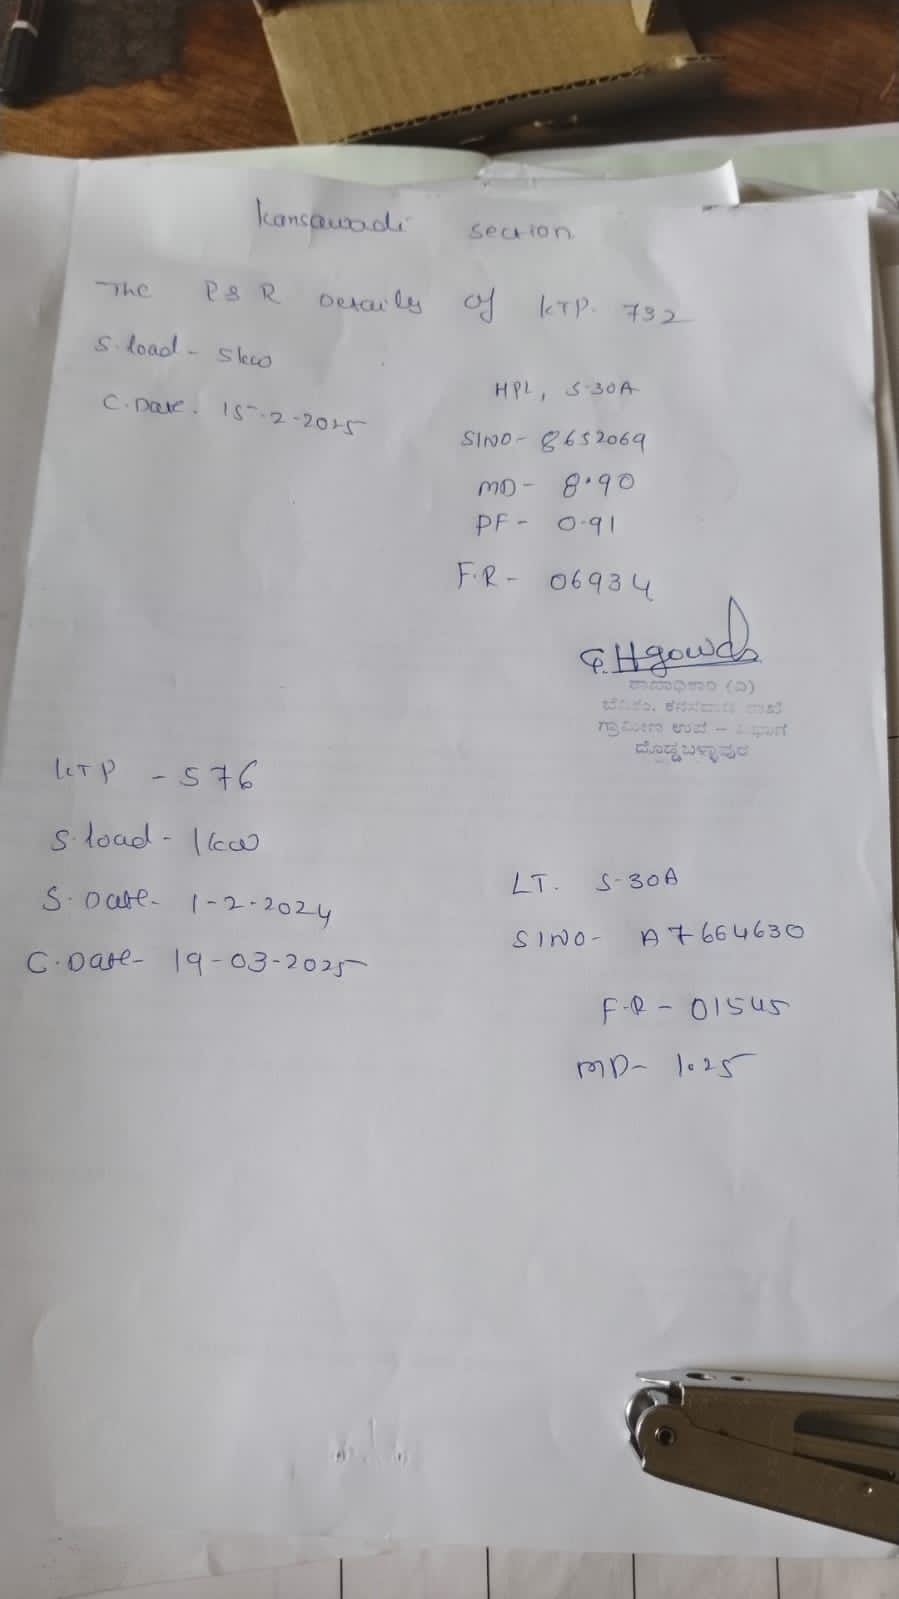 Kansawadi section
The P&R Details of KTP- 732
S.load - 5kw
C.Date. 15-2-2025
HPL, 5-30A
SlNO- 8652069
MD - 8.90
PF - 0.91
F.R - 06934
ಶಾಖಾಧಿಕಾರಿ (ವಿ)
ಬೆವಿಕಂ, ಕನಸವಾಡಿ ಶಾಖೆ
ಗ್ರಾಮೀಣ ಉಪ - ವಿಭಾಗ
ದೊಡ್ಡಬಳ್ಳಾಪುರ
KTP - 576
S.load - 1kw
S.Date- 1-2-2024
C.Date- 19-03-2025
LT. 5-30A
SlNO- A7664630
F.R - 01545
MD- 1.25